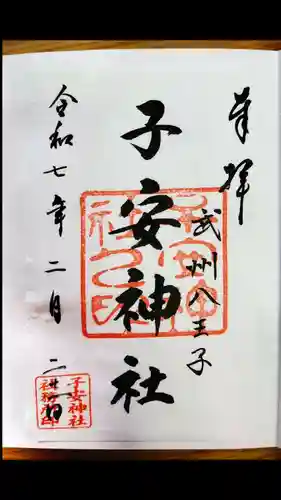 奉拝
武州八王子
子安神社
令和七年二月二日
子安神社
社務所印